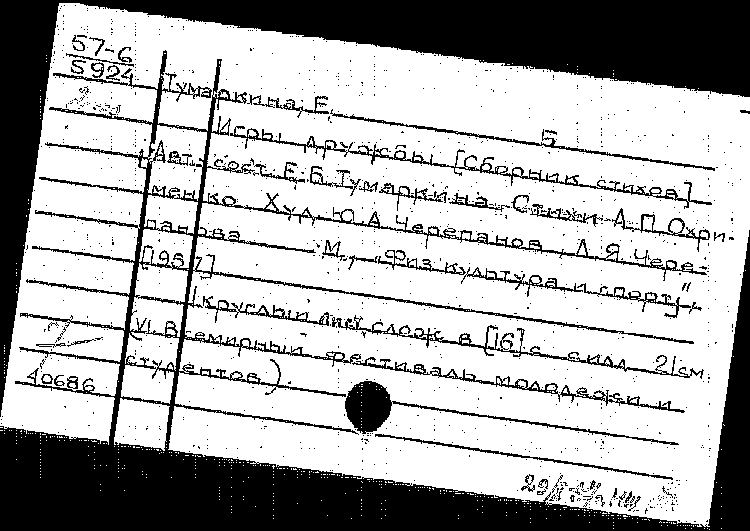 57-6
5924
Тумаркина, Е. Б
Игры дружбы [Сборник стихов]
Авт.-сост. Е. Б. Тумаркина. Стихи А. П. Охри-
менко. Худ. Ю. А. Черепанов, Л. Я. Чере-
панова М., „Физкультура и спорт”,
[1957]
1 круглый лист, слож. в [16] с. с илл. 21 см.
(VI Всемирный фестиваль молодежи и
студентов).
40686